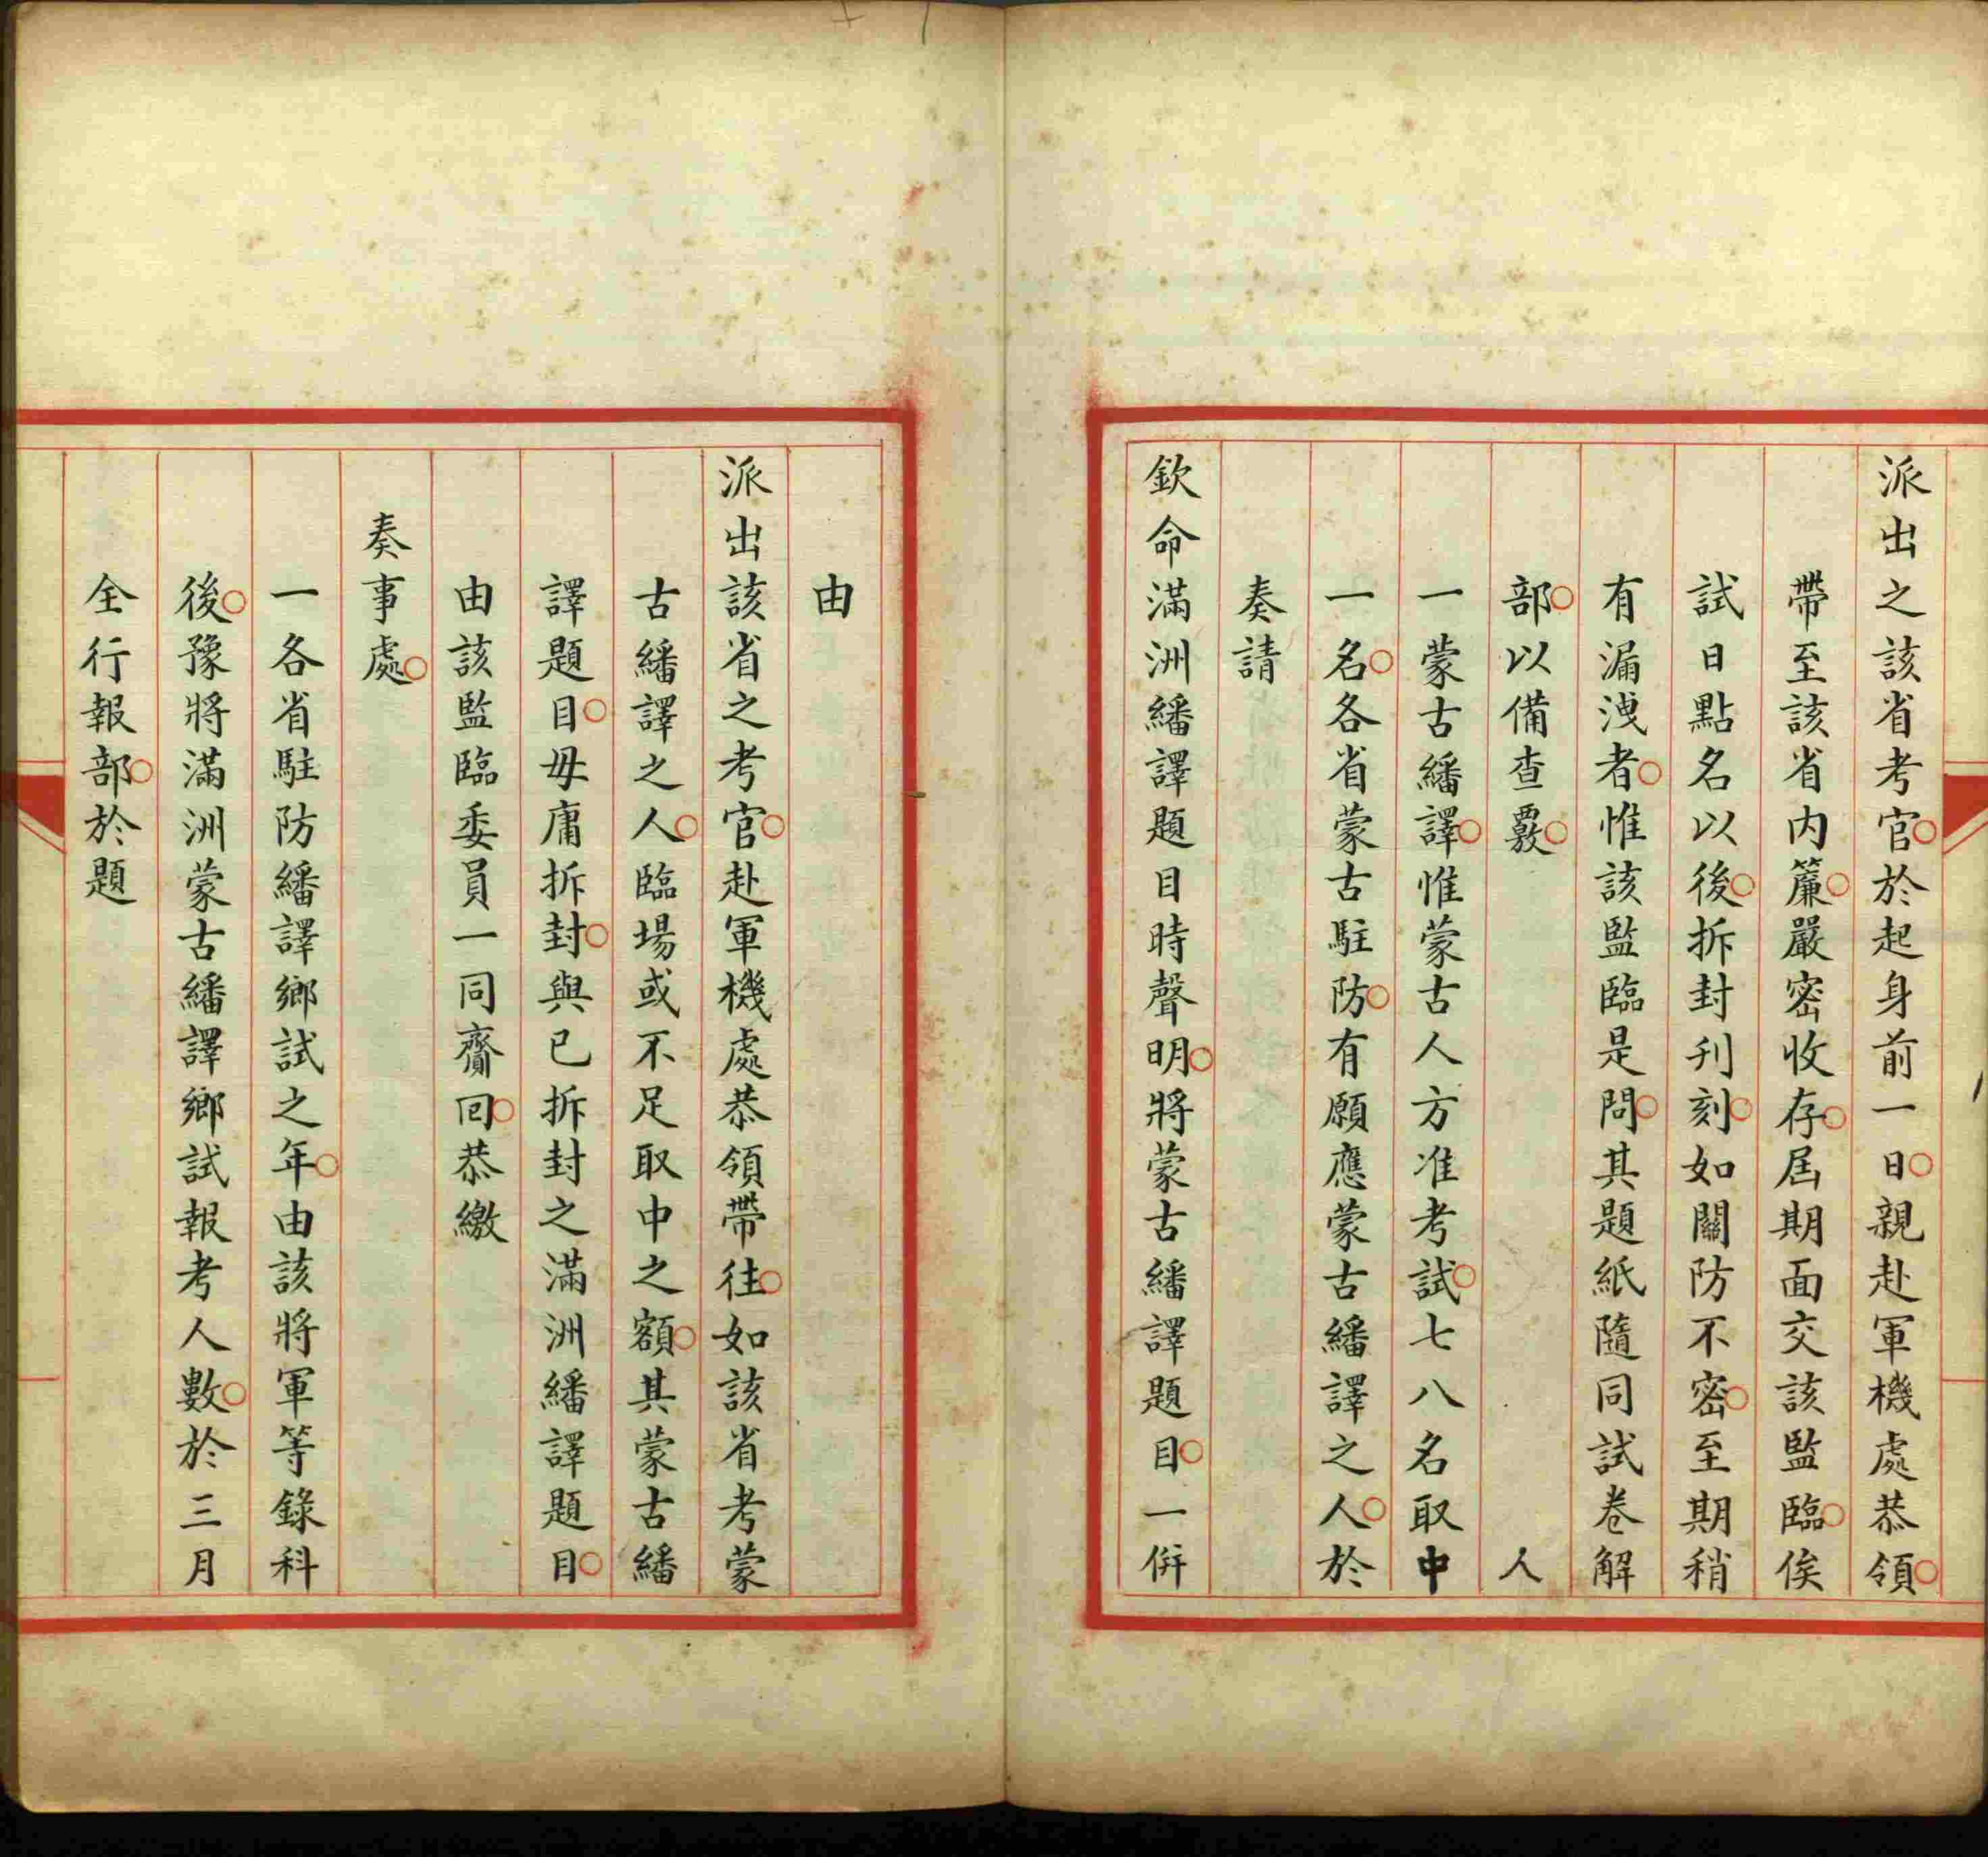 派出之該省考官於起身前一日親赴軍機處恭領
帶至該省內簾嚴密收存屆期面交該監臨俟
試日點名以後拆封刋刻如關防不密至期稍
有漏洩者惟該監臨是問其題紙隨同試卷解
部以備查覈 人
一蒙古繙譯惟蒙古人方准考試七八名取中
一名各省蒙古駐防有願應蒙古繙譯之人於
奏請
欽命滿洲繙譯題目時聲明將蒙古繙譯題目一併
由
派出該省之考官赴軍機處恭領帶往如該省考蒙
古繙譯之人臨場或不足取中之額其蒙古繙
譯題目毋庸拆封與已拆封之滿洲繙譯題目
由該監臨委員一同齎回恭繳
奏事處
一各省駐防繙譯鄉試之年由該將軍等錄科
後豫將滿洲蒙古繙譯鄉試報考人數於三月
全行報部於題